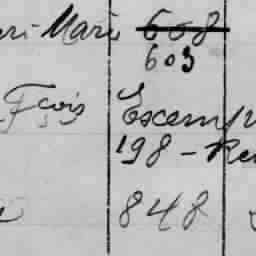 Mari 608
603
Fçois Exemp
198 - Re
848